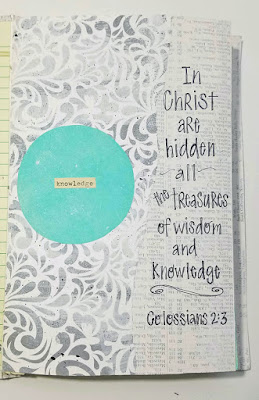 knowledge
In
CHRIST
are
hidden
all
the TREASURES
of wisdom
and
Knowledge
Colossians 2:3